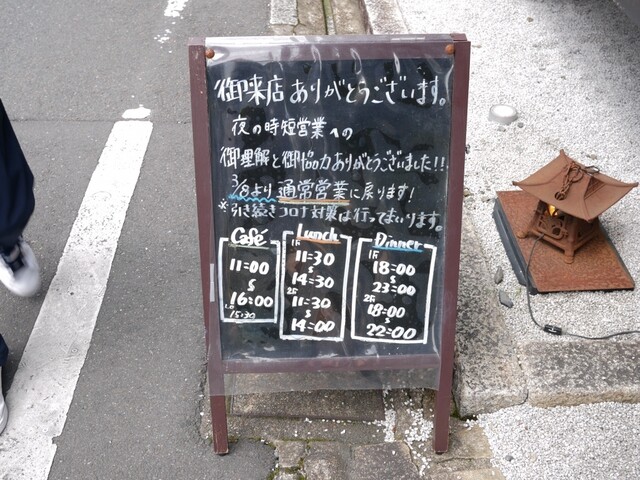 御来店ありがとうございます。
夜の時短営業への
御理解と御協力ありがとうございました!!
3/8より通常営業に戻ります!
※引き続きコロナ対策は行ってまいります。
Café
11:00
~
16:00
L.O 15:30
Lunch
1F
11:30
~
14:30
2F
11:30
~
14:00
Dinner
1F
18:00
~
23:00
2F
18:00
~
22:00